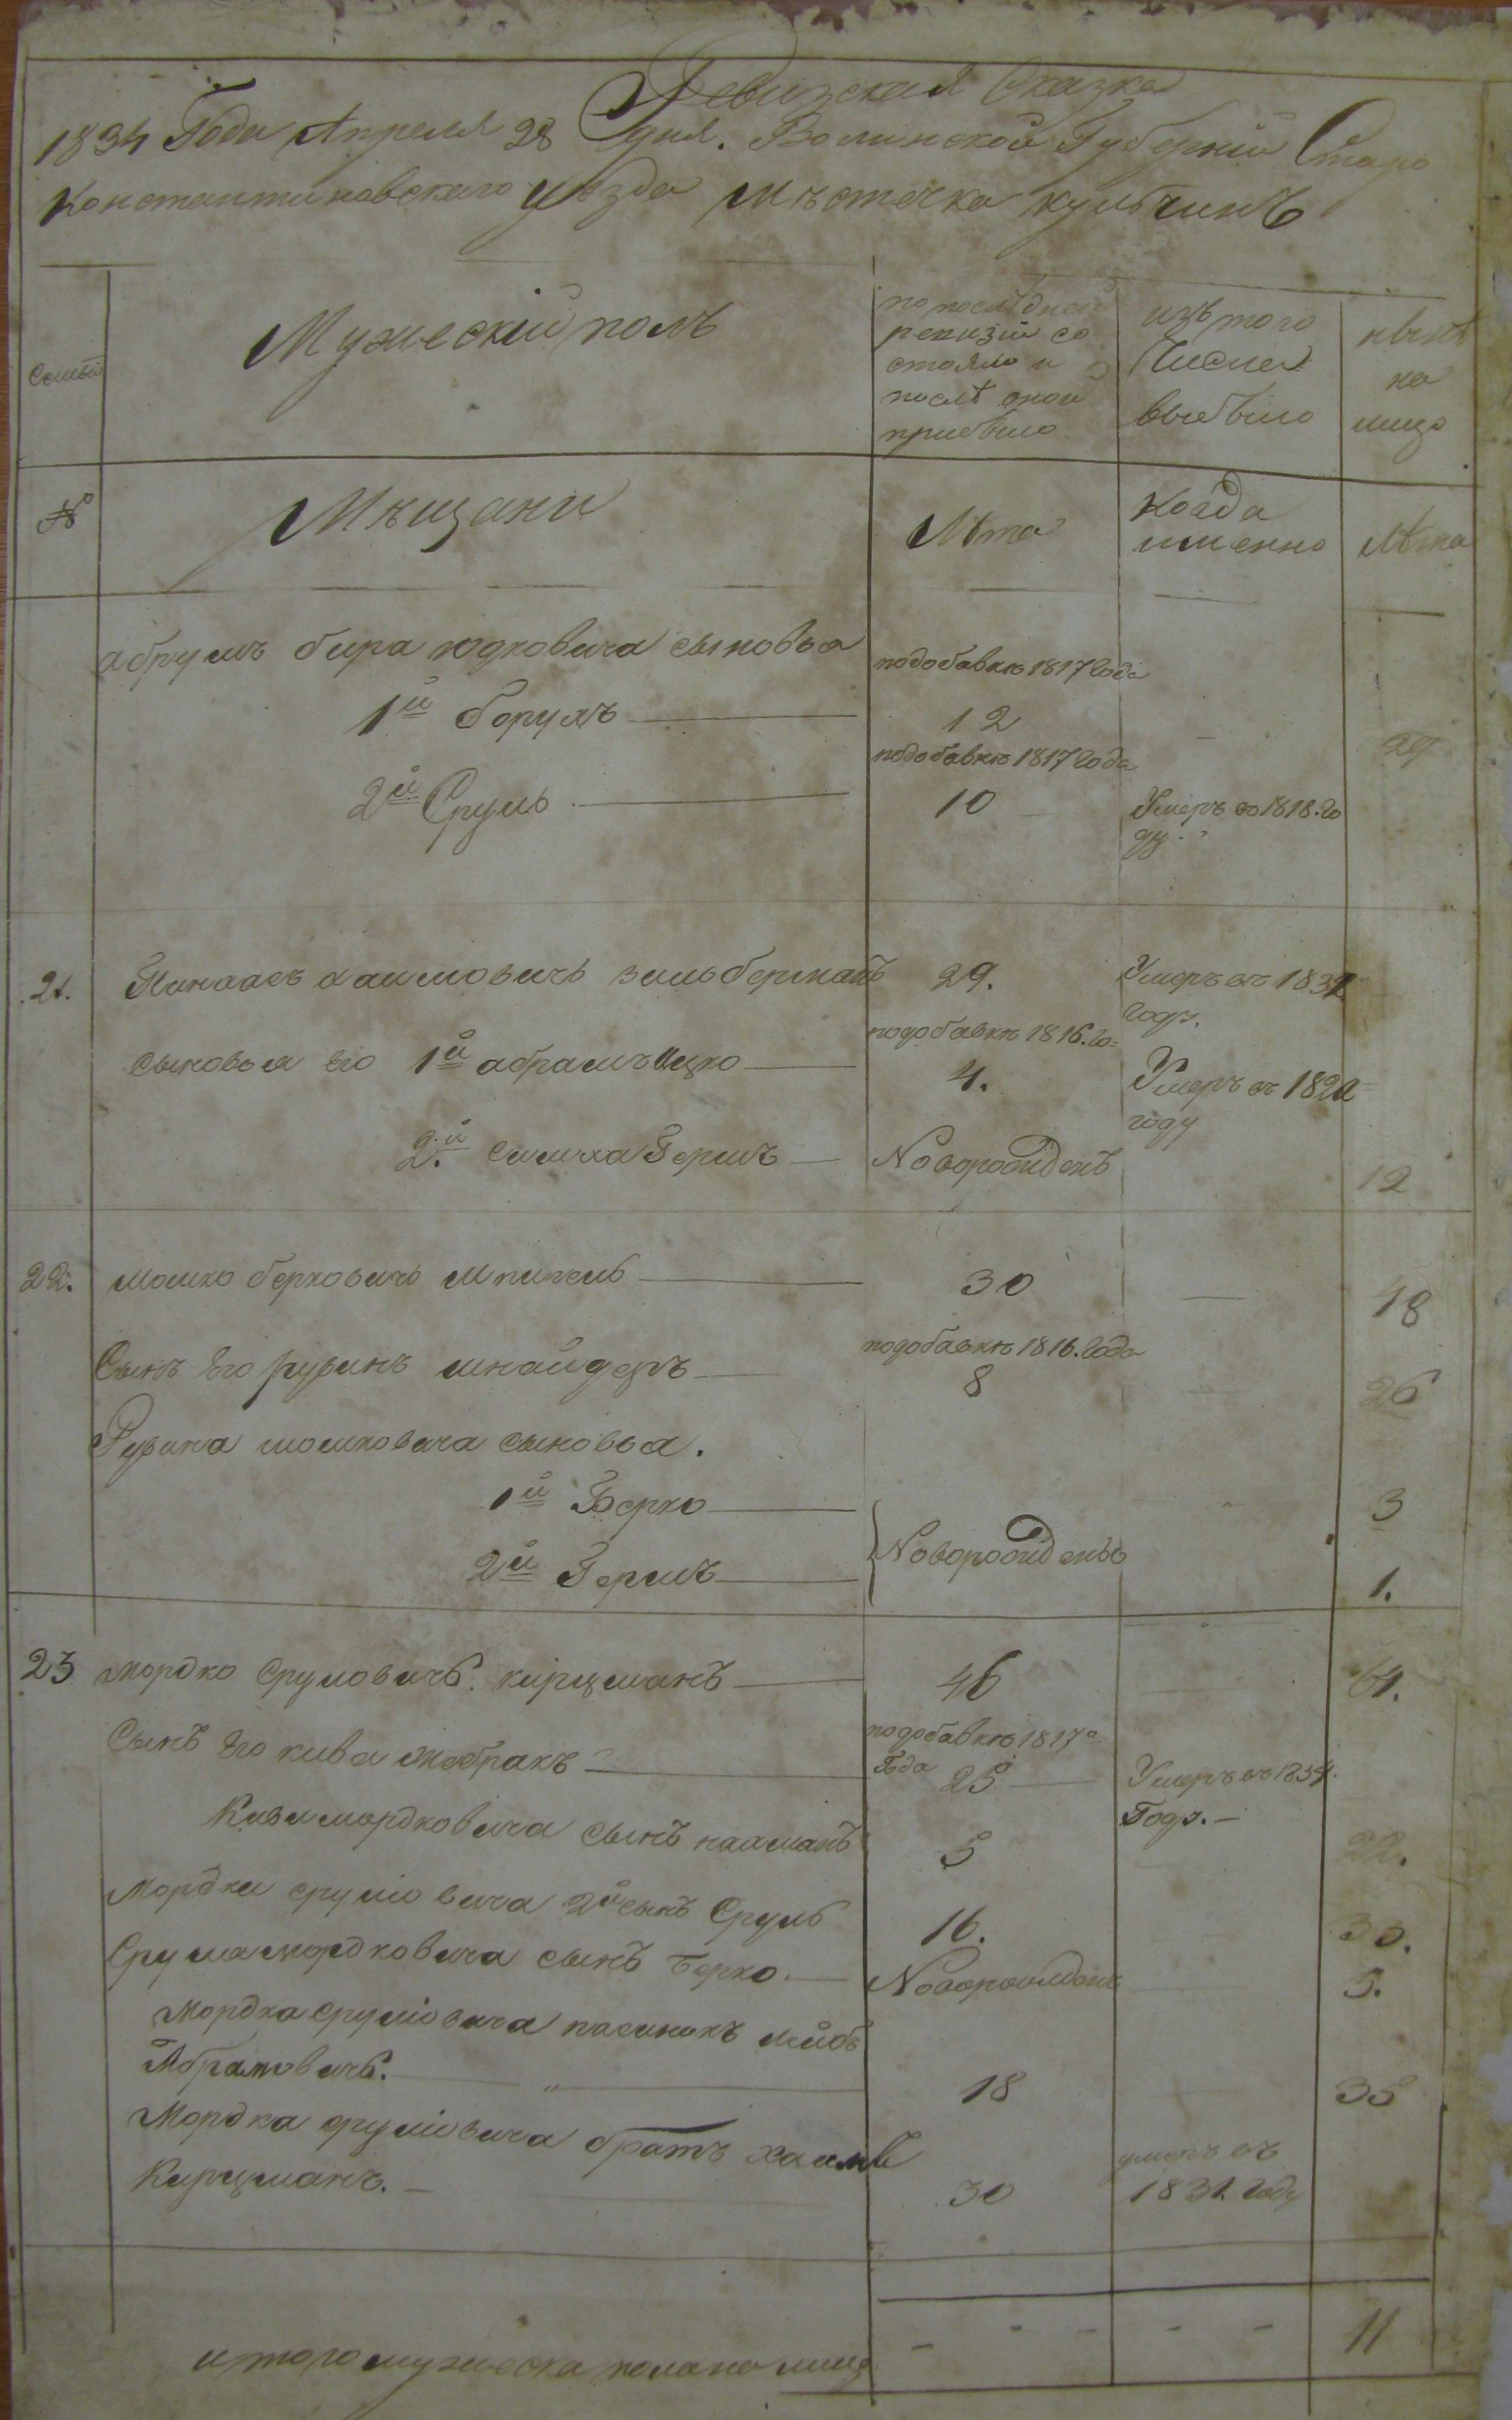 Ревизская Сказка
1834 Года Апреля 28 дня. Волинской Губернии Старо
Константиновскаго уѣзда мѣстечка кульчинъ
Семьи
Мужескiй полъ
по послѣдней
ревизiи со
стояло и
послѣ оной
прибыло.
изъ того
Числа
выбыло
нынѣ
на
лицо
№
Мѣщани
Лѣта
Когда
именно
Лѣта
абрумъ бира юдковича сыновья
подобавкѣ 1817 года
1й борухъ
12
29
подобавкѣ 1817 года
2й Сруль
10
Умеръ во 1818. го
ду.
21.
Пинхасъ хаимовичъ зильберманъ
29.
Умеръ въ 1832
году.
подобавкѣ 1816. го=
сыновья его 1й абрамъ ицко
4.
Умеръ въ 182
году
2.й симха Гершъ
Новорожденъ
12
22.
мошко берковичъ
30
48
подобавкѣ 1816. года
Сынъ его рувинъ шнайдеръ
8
26
Рувина мошковича сыновья.
1й Берко
3
Новорождены
2й Гершъ
1.
23
мордко Сруловичъ. кирцманъ
46
64.
подобавкѣ 1817а
Сынъ его кива жебракъ
Года
25
Умеръ въ 1834.
Году.
Киви мордковича сынъ нахманъ
5
22.
Мордки срулiовича 2й сынъ Сруль
16.
33.
Срулямордковича сынъ берко.
Новорожденъ
5.
Мордка срулiовича пасинокъ лейбъ
Абрамовичъ.
18
35
Мордка срулiовича братъ хаимъ
умеръ въ
Кирцманъ.
30
1831. году
итого мужеска пола на лицо
11